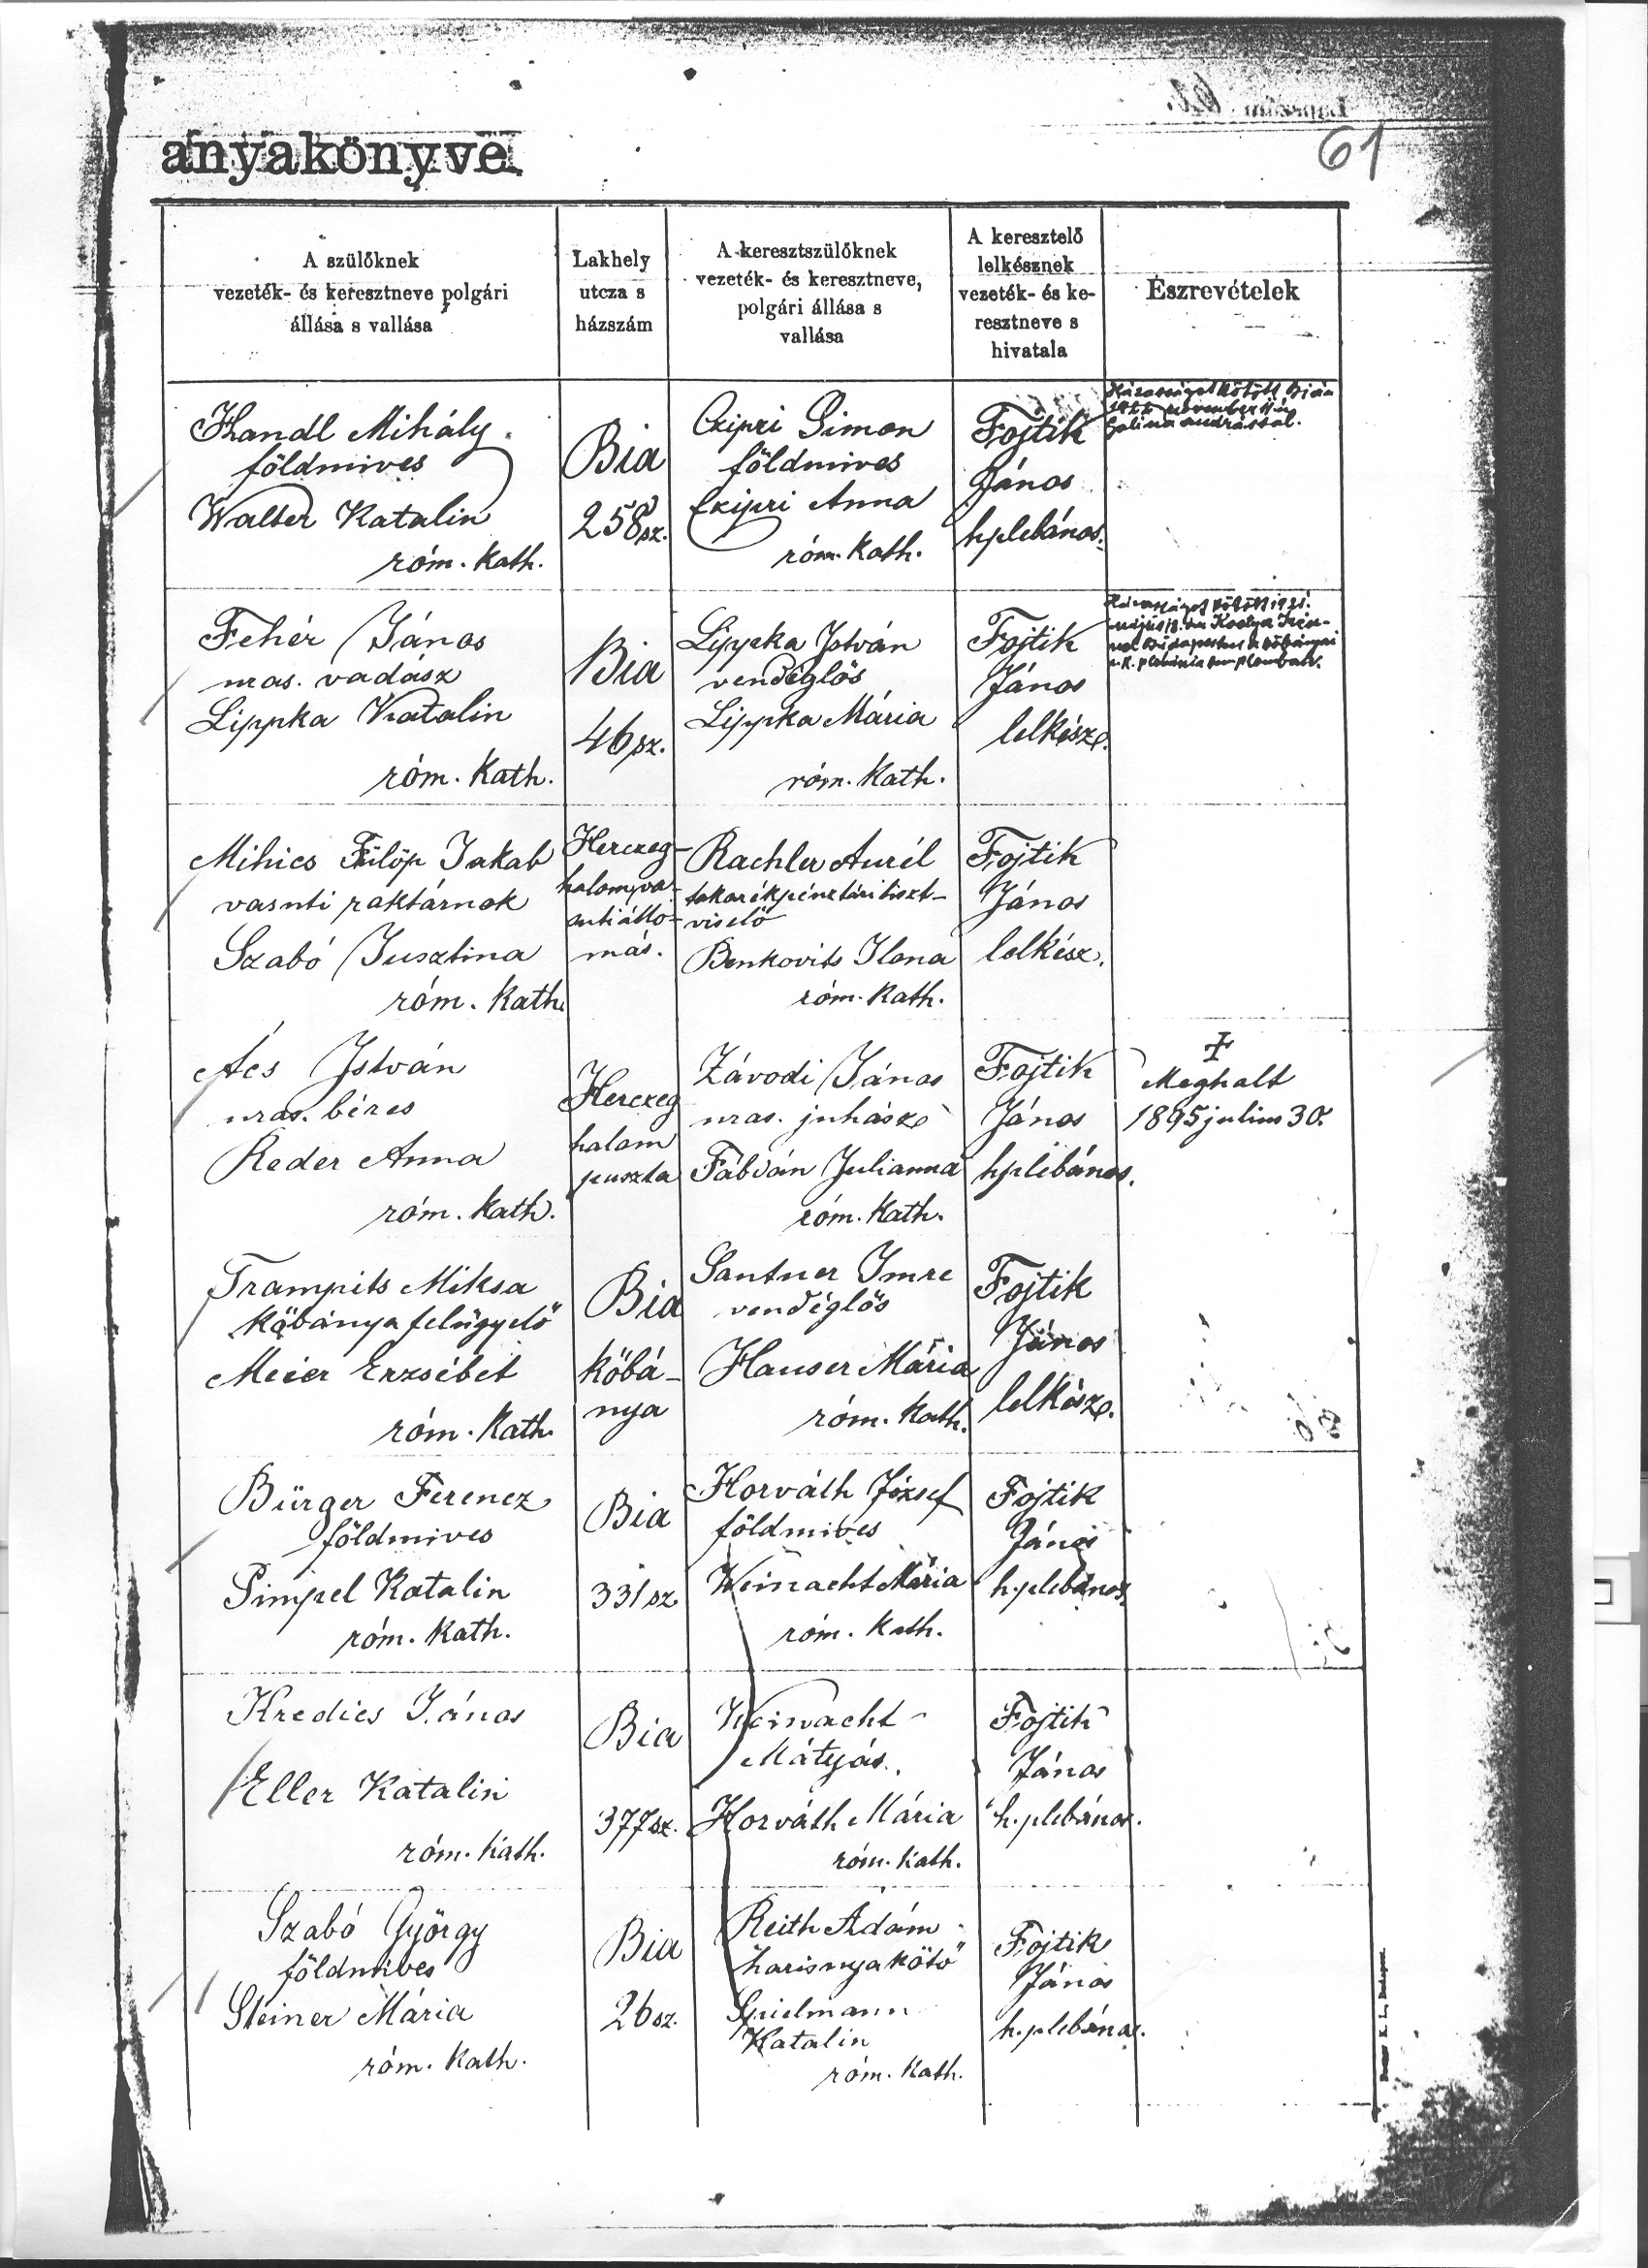 61
anyakönyve.
A szülőknek
vezeték- és keresztneve polgári
állása s vallása
Lakhely
utcza s
házszám
A keresztszülőknek
vezeték- és keresztneve,
polgári állása s
vallása
A keresztelő
lelkésznek
vezeték- és ke-
resztneve s
hivatala
Észrevételek
Handl Mihály
földmives
Walter Katalin
róm. kath.
Bia
258 sz.
Czipri Simon
földmives
Czipri Anna
róm. kath.
Fojtik
János
hplebános.
Házasságot kötött Bián
november
Galina Andrással.
Fehér János
uras. vadász
Lippka Katalin
róm. kath.
Bia
46 sz.
Lippka István
vendéglős
Lippka Mária
róm. kath.
Fojtik
János
lelkész.
Házasságot kötött 1921.
május
Budapesten a kőbányai
r. k. plébánia templomban.
Mihics Fülöp Jakab
vasuti raktárnok
Szabó Jusztina
róm. kath.
Herczeg-
halom, va-
suti állo-
más.
Rachler Aurél
takarékpénztári tiszt-
viselő
Benkovits Ilona
róm. kath.
Fojtik
János
lelkész.
Ács István
uras. béres
Reder Anna
róm. kath.
Herczeg
halom
puszta
Závodi János
uras. juhász
Fábián Julianna
róm. kath.
Fojtik
János
hplebános.
Meghalt
1895 julius 30.
Trampits Miksa
kőbánya felügyelő
Meier Erzsébet
róm. kath.
Bia
kőbá-
nya
Santner Imre
vendéglős
Hauser Mária
róm. kath.
Fojtik
János
lelkész.
Bürger Ferencz
földmives
Pimpel Katalin
róm. kath.
Bia
331 sz.
Horváth József
földmives
Weinacht Mária
róm. kath.
Fojtik
János
h. plebános.
Kredics János
Eller Katalin
róm. kath.
Bia
377 sz.
Weinacht
Mátyás.
Horváth Mária
róm. kath.
Fojtik
János
h. plebános.
Szabó György
földmives
Steiner Mária
róm. kath.
Bia
26 sz.
Reith Ádám
harisnyakötő
Spielmann
Katalin
róm. kath.
Fojtik
János
h. plebános.